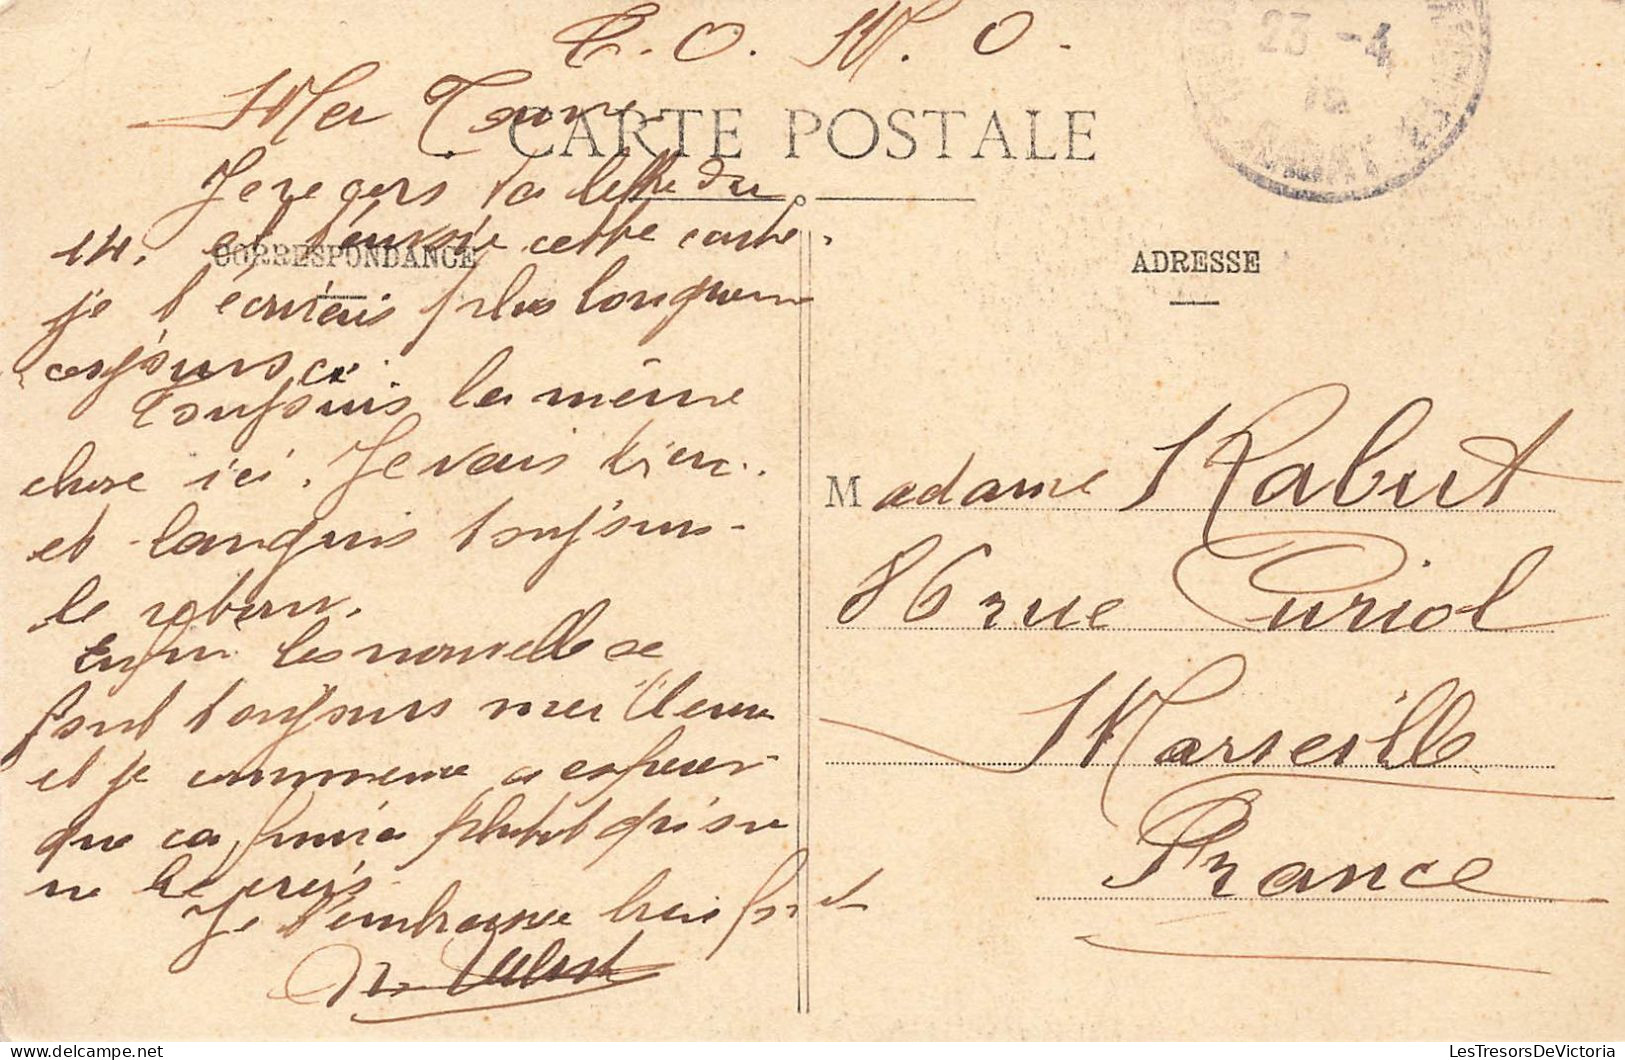 T. O. M. O.
Ma
CARTE POSTALE
Je reçois ta lettre du
14. et t'envoie cette carte.
CORRESPONDANCE
je t'écrirais plus longuem
Toujours la même
chose ici. Je vais bien.
et languis toujours
le retour.
Enfin les nouvelle se
font toujours meilleure
et je commence a esperer
que ca finira plutot qu'on
ne le crois
Je t'embrasse bien fort
23 -4
ADRESSE
Madame Rabut
86 rue Curiol
Marseille
France
LesTresorsDeVictoria